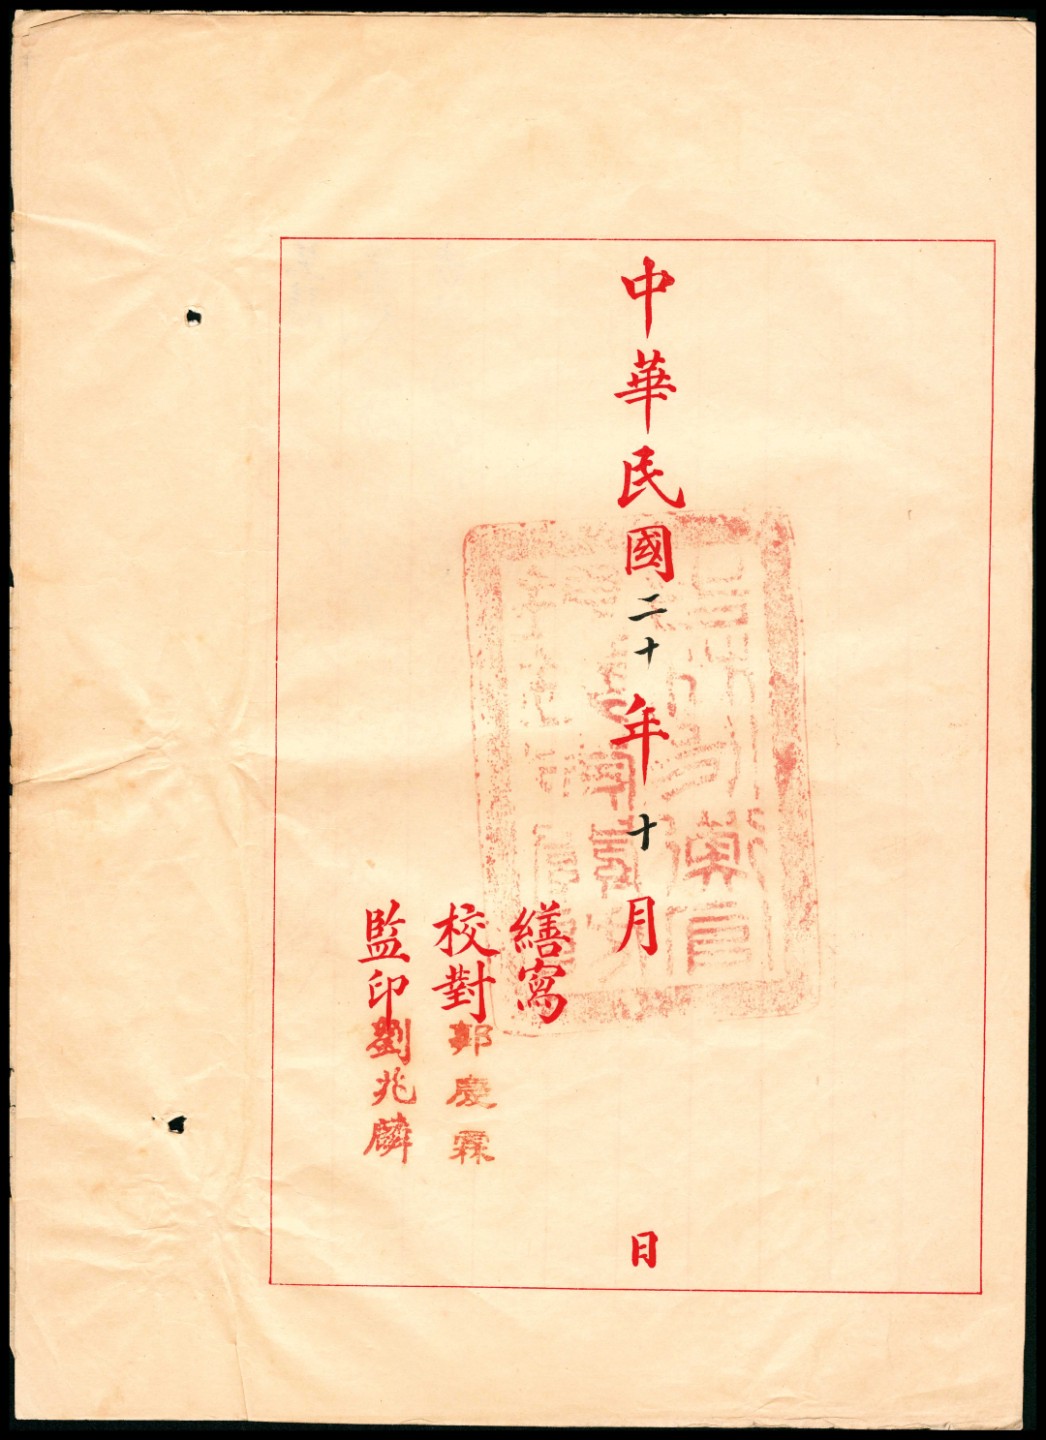 中華民國二十年十月 日
繕寫
校對郭慶霖
監印劉兆麟